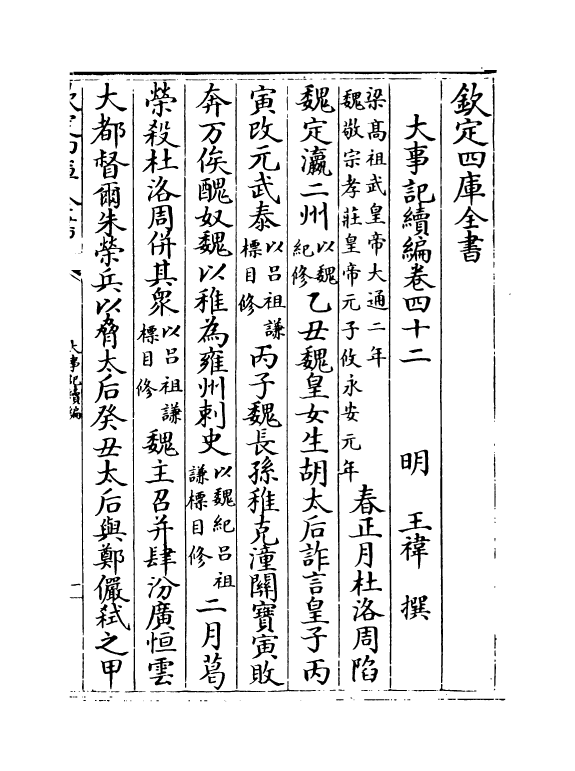 欽定四庫全書
大事記續編卷四十二　明　王禕　撰
梁髙祖武皇帝大通二年
魏敬宗孝莊皇帝元子攸永安元年
春正月杜洛周陷
魏定瀛二州以魏紀修乙丑魏皇女生胡太后詐言皇子丙
寅改元武泰以吕祖謙標目修丙子魏長孫稚克潼關寶寅敗
奔万俟醜奴魏以稚為雍州刺史以魏紀吕祖謙標目修二月葛
榮殺杜洛周併其衆以吕祖謙標目修魏主召并肆汾廣恒雲
大都督爾朱榮兵以脅太后癸丑太后與鄭儼弑之甲
大事記續編